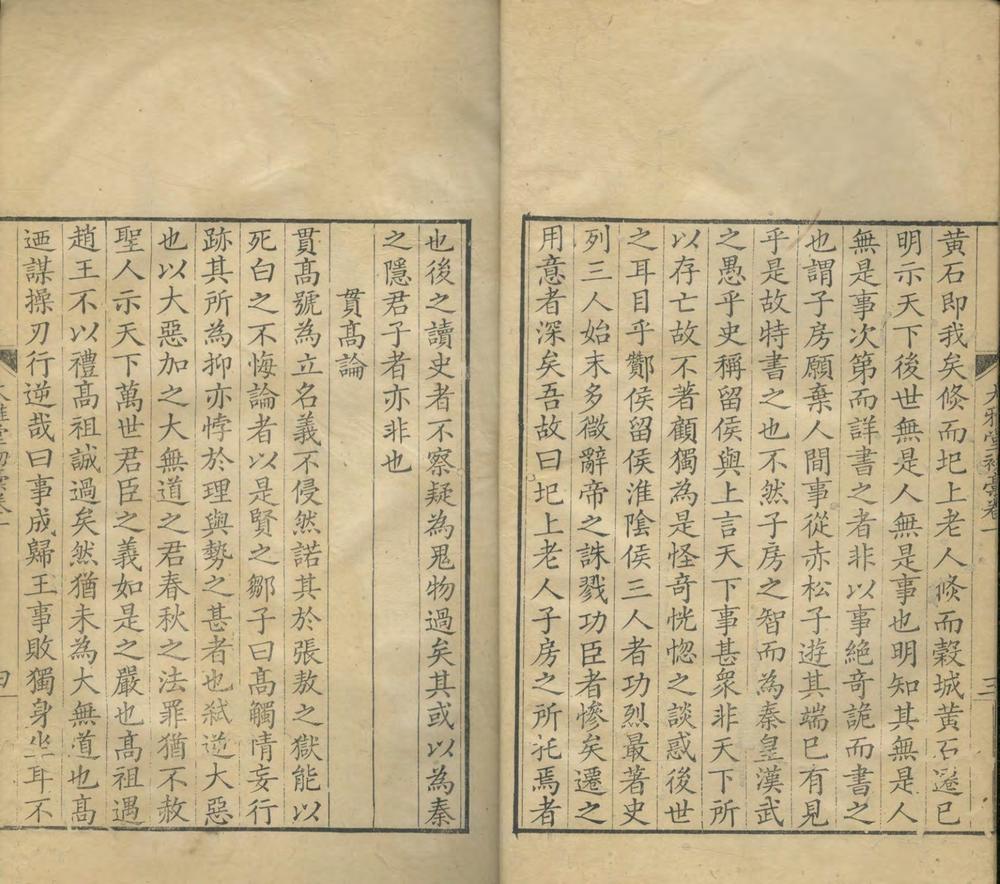 大雅堂初藁卷一
三
黃石即我矣倐而圯上老人倐而穀城黃石遷已
明示天下後世無是人無是事也明知其無是人
無是事次第而詳書之者非以事絕奇詭而書之
也謂子房願棄人間事從赤松子遊其端已有見
乎是故特書之也不然子房之智而為秦皇漢武
之愚乎史稱留侯與上言天下事甚衆非天下所
以存亡故不著顧獨為是怪奇恍惚之談惑後世
之耳目乎酇侯留侯淮陰侯三人者功烈最著史
列三人始末多微辭帝之誅戮功臣者慘矣遷之
用意者深矣吾故曰圯上老人子房之所託焉者
也後之讀史者不察疑為鬼物過矣其或以為秦
之隱君子者亦非也
貫髙論
貫髙號為立名義不侵然諾其於張敖之獄能以
死白之不悔論者以是賢之鄒子曰髙觸情妄行
跡其所為抑亦悖於理與勢之甚者也弒逆大惡
也以大惡加之大無道之君春秋之法罪猶不赦
聖人示天下萬世君臣之義如是之嚴也髙祖遇
趙王不以禮髙祖誠過矣然猶未為大無道也髙
迺謀操刃行逆哉曰事成歸王事敗獨身坐耳不
大雅堂初藁卷一
四